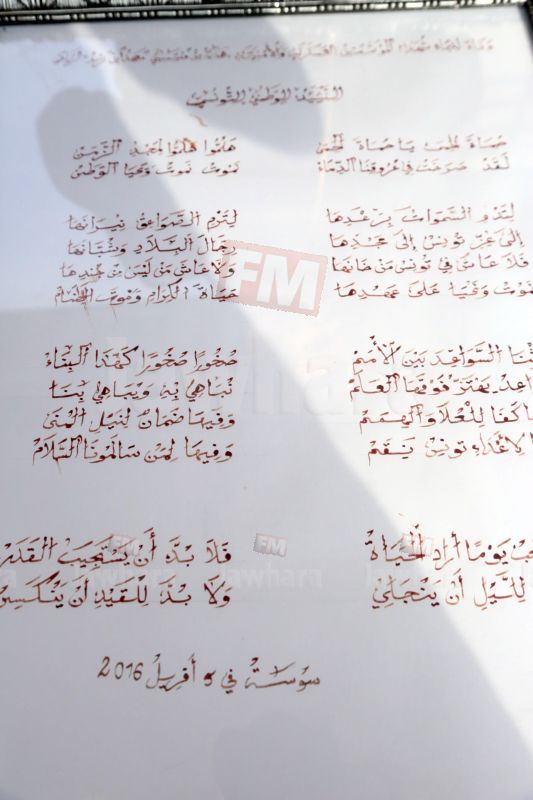 النشيد الوطني التونسي
حماة الحمى يا حماة الحمى هلموا هلموا لمجد الزمن
لقد صرخت في عروقنا الدماء نموت نموت ويحيا الوطن
لتدم السموات برعدها لترم الصواعق نيرانها
إلى عز تونس إلى مجدها رجال البلاد وشبانها
فلا عاش في تونس من خانها ولا عاش من ليس من جندها
نموت ونحيا على عهدها حياة الكرام وموت العظام
السواعد بين الأمم صخورا صخورا كهذا البناء
فوقها العلم نباهي به ويباهي بنا
كفا للعلا والهمم وفيها ضمان لنيل المنى
لأعداء تونس نقم وفيها لمن سالمونا السلام
يوما أراد الحياة فلا بد أن يستجيب القدر
لليل أن ينجلي ولا بد للقيد أن ينكسر
سوسة في 5 أفريل 2016
FM
Jawhara
FM
FM
Jawhara